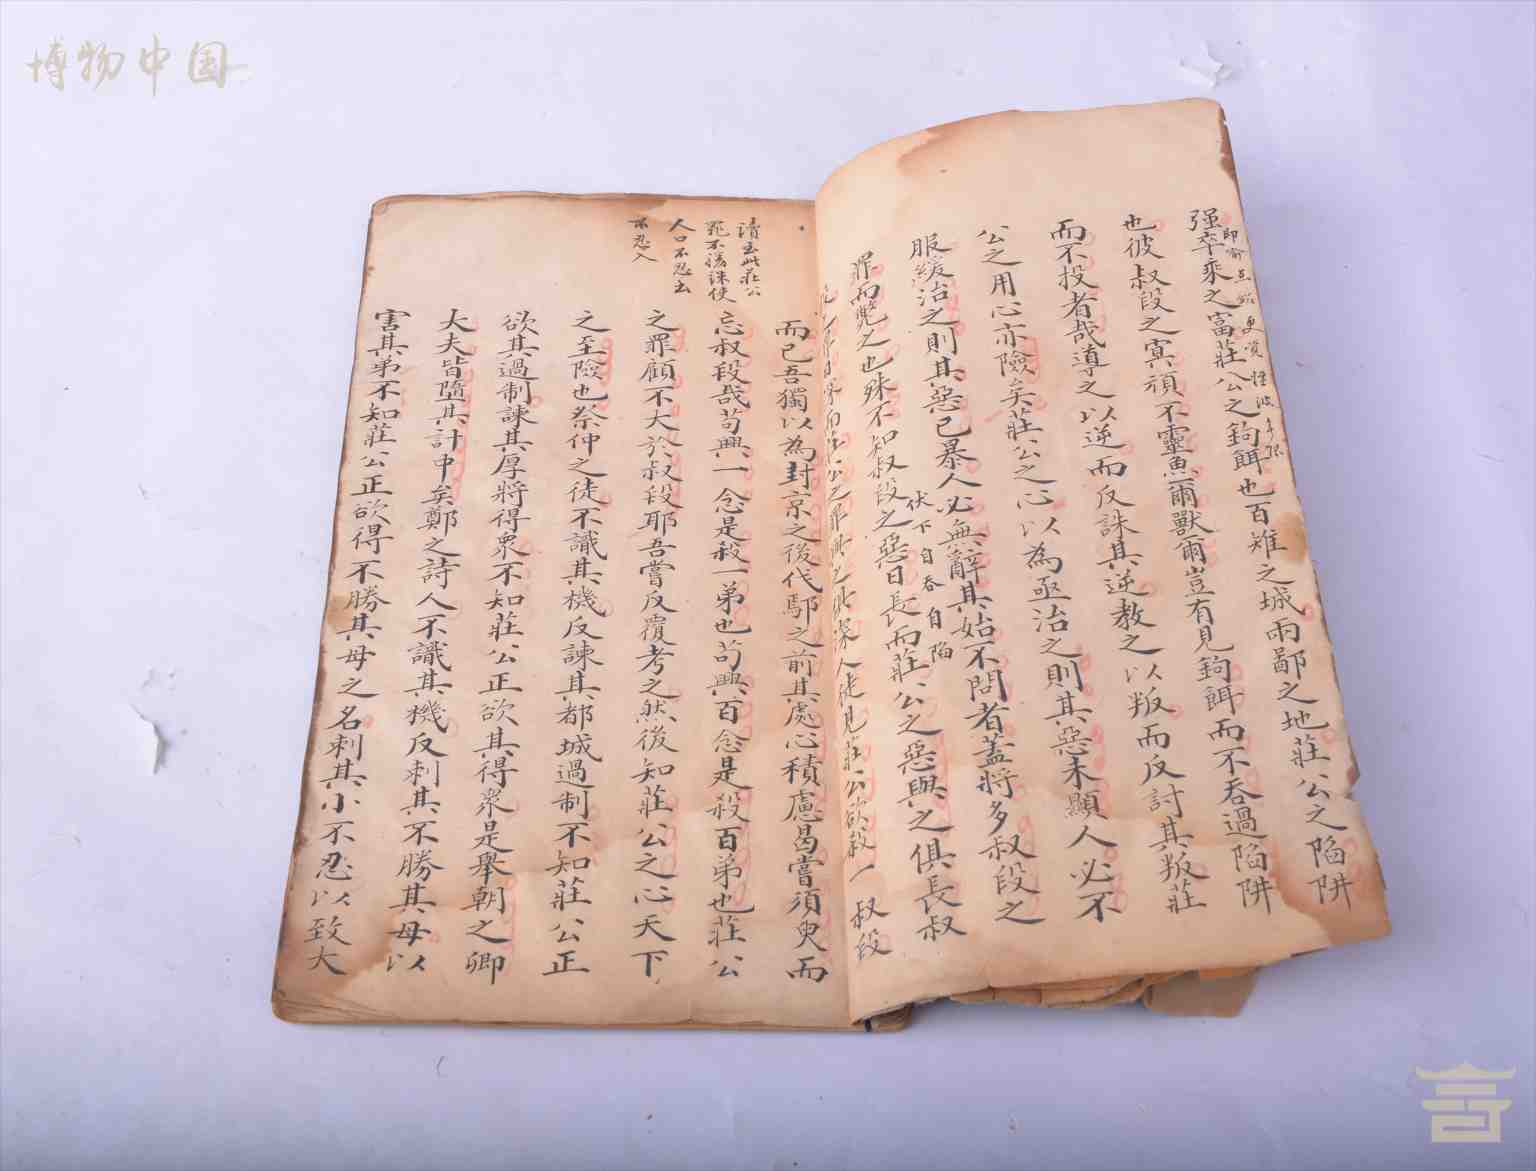 强卒乘之富莊公之鉤餌也百雉之城兩鄙之地莊公之陷阱
也彼叔段之冥頑不靈魚爾獸爾豈有見鉤餌而不吞過陷阱
而不投者哉導之以逆而反誅其逆教之以叛而反討其叛莊
公之用心亦險矣莊公之心以為亟治之則其惡未顯人必不
服緩治之則其惡已暴人必無辭其始不問者蓋將多叔段之
伏下自吞自陷
罪而斃之也殊不知叔段之惡日長而莊公之惡與之俱長叔
段之罪日深而莊公之罪與之俱深人徒見莊公欲殺一叔段
讀至此莊公
罪不勝誅使
人口不忍出
耳不忍入
而已吾獨以為封京之後伐鄢之前其處心積慮曷嘗須臾而
忘叔段哉茍興一念是殺一弟也茍興百念是殺百弟也莊公
之罪顧不大於叔段耶吾嘗反覆考之然後知莊公之心天下
之至險也祭仲之徒不識其機反諫其都城過制不知莊公正
欲其過制諫其厚將得衆不知莊公正欲其得衆是舉朝之卿
大夫皆墮其計中矣鄭之詩人不識其機反刺其不勝其母以
害其弟不知莊公正欲得不勝其母之名刺其小不忍以致大
博物中国